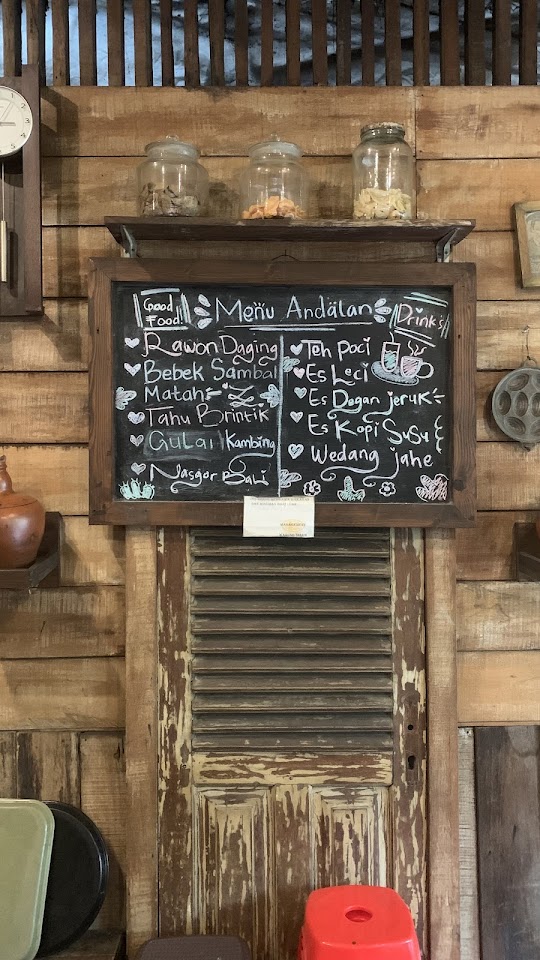 Good Food!
Menu Andalan
Drink's
Rawon Daging
Bebek Sambal
Matah
Tahu Brintik
Gulai Kambing
Nasgor Bali
Teh Poci
Es Leci
Es Degan jeruk
Es Kopi Susu
Wedang jahe